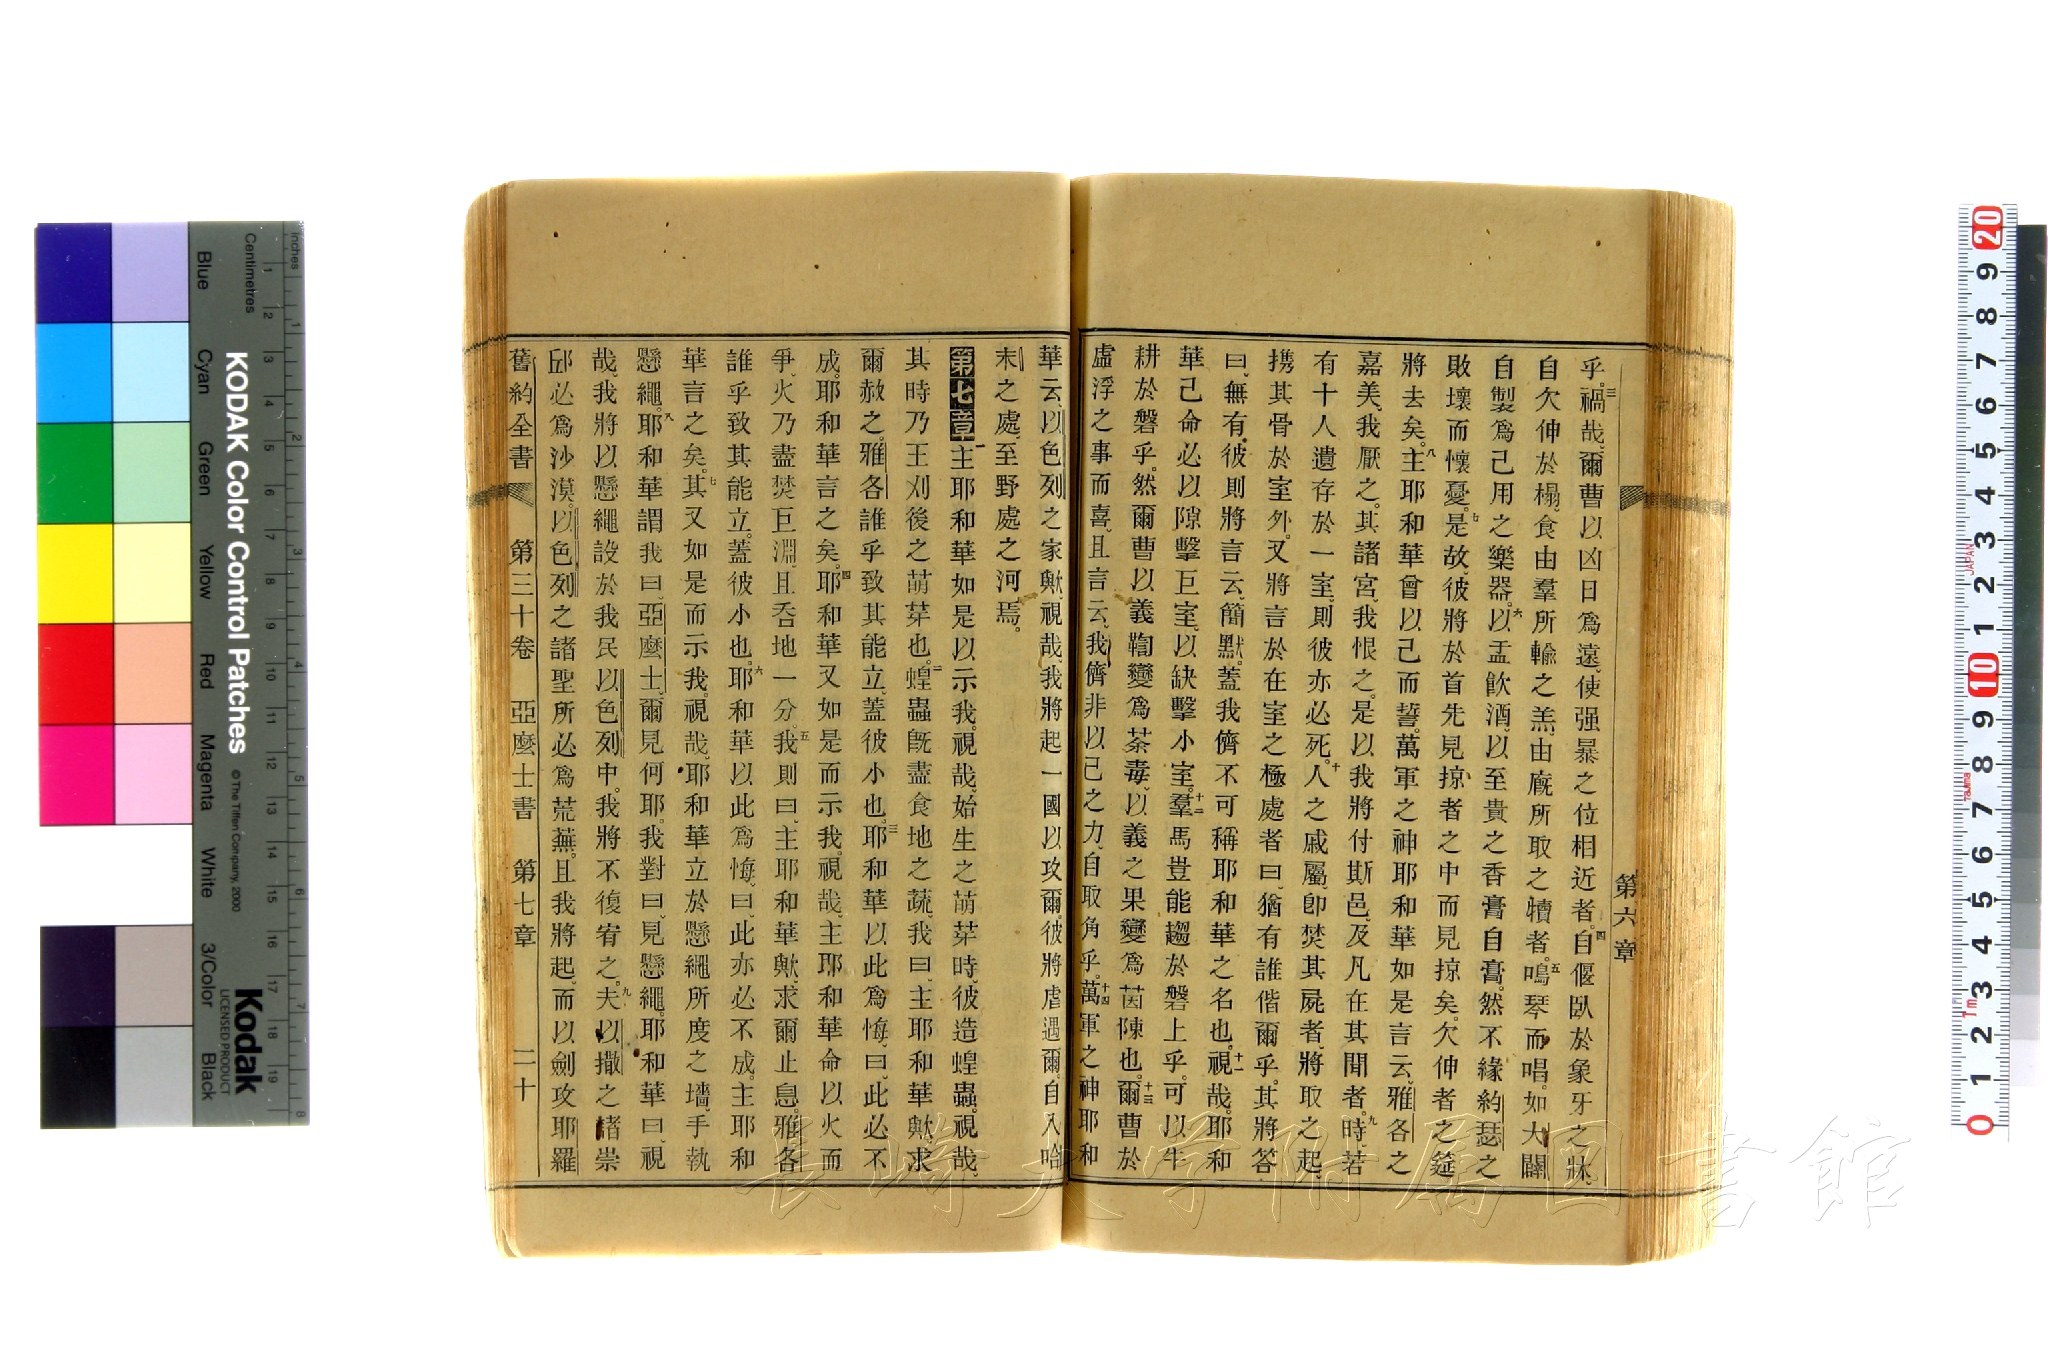 第六章
乎。三禍哉、爾曹以凶日爲遠、使强暴之位相近者。四自偃臥於象牙之牀。
自欠伸於榻、食由羣所輸之羔、由廐所取之犢者。五鳴琴而唱。如大闢
自製爲己用之樂器。六以盂飮酒、以至貴之香膏自膏。然不緣約瑟之
敗壞而懷憂。七是故、彼將於首先見掠者之中而見掠矣。欠伸者之筵
將去矣。八主耶和華曾以己而誓。萬軍之神耶和華如是言云、雅各之
嘉美、我厭之。其諸宮、我恨之。是以我將付斯邑、及凡在其閒者。九時、若
有十人遺存於一室、則彼亦必死。十人之戚屬、卽焚其屍者、將取之起。
携其骨於室外。又將言於在室之極處者曰、猶有誰偕爾乎。其將答
曰、無有。彼則將言云、簡默。蓋我儕不可稱耶和華之名也。十一視哉、耶和
華己命必以隙擊巨室、以缺擊小室。十二羣馬豈能趨於磐上乎。可以牛
耕於磐乎。然爾曹以義鞫變爲荼毒、以義之果變爲茵陳也。十三爾曹於
虛浮之事而喜、且言云、我儕非以己之力、自取角乎。十四萬軍之神耶和
華云、以色列之家歟、視哉、我將起一國以攻爾。彼將虐遇爾。自入哈
末之處、至野處之河焉。
第七章一主耶和華如是以示我。視哉、始生之萌芽時、彼造蝗蟲。視哉、
其時乃王刈後之萌芽也。二蝗蟲旣盡食地之蔬、我曰、主耶和華歟、求
爾赦之。雅各誰乎致其能立、蓋彼小也。三耶和華以此爲悔。曰、此必不
成。耶和華言之矣。四耶和華又如是而示我。視哉、主耶和華命以火而
爭。火乃盡焚巨淵、且呑地一分。五我則曰、主耶和華歟、求爾止息。雅各
誰乎致其能立。蓋彼小也。六耶和華以此爲悔。曰、此亦必不成。主耶和
華言之矣。七其又如是而示我。視哉、耶和華立於懸繩所度之墻、手執
懸繩。八耶和華謂我曰、亞麼士、爾見何耶。我對曰、見懸繩。耶和華曰、視
哉、我將以懸繩設於我民以色列中。我將不復宥之。九夫以撒之諸崇
邱必爲沙漠。以色列之諸聖所必爲荒蕪。且我將起、而以劍攻耶羅
舊約全書 第三十卷 亞麼士書 第七章 二十
長崎大学附属図書館
KODAK Color Control Patches
©The Tiffen Company, 2000
Kodak
LICENSED PRODUCT
Inches
Centimetres
Blue
Cyan
Green
Yellow
Red
Magenta
White
3/Color
Black
1 2 3 4 5 6 7 8 9 10 11 12 13 14 15 16 17 18 19
1 2 3 4 5 6 7 8
20 9 8 7 6 5 4 3 2 1 10 9 8 7 6 5 4 3 2 1 0
JAPAN
Tajima
1m